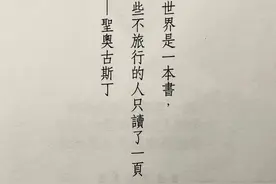 世界是一本書，
些不旅行的人只讀了一頁
—聖奧古斯丁